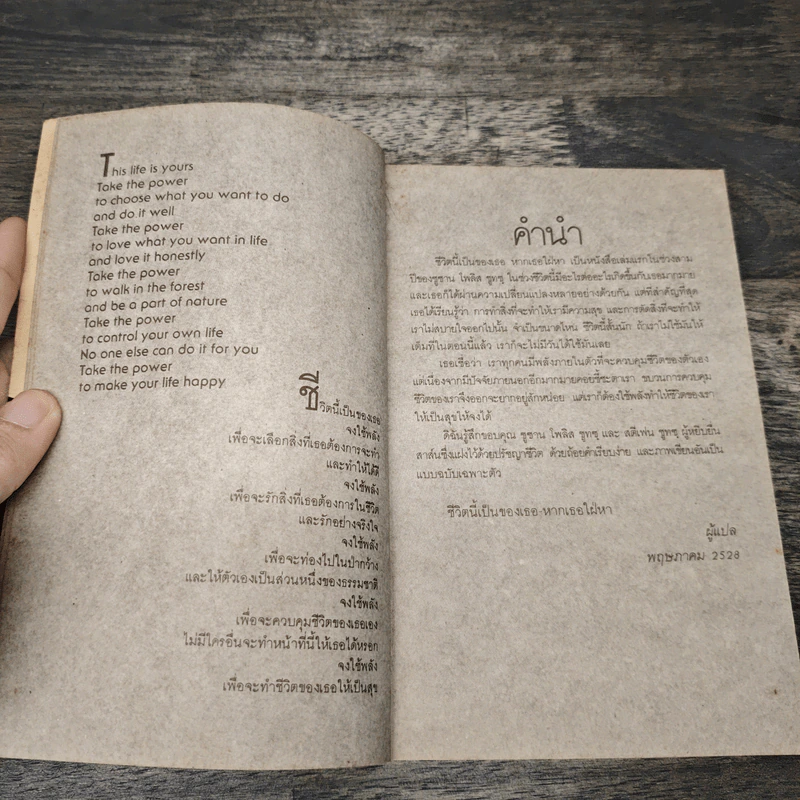 This life is yours
Take the power
to choose what you want to do
and do it well
Take the power
to love what you want in life
and love it honestly
Take the power
to walk in the forest
and be a part of nature
Take the power
to control your own life
No one else can do it for you
Take the power
to make your life happy
ชีวิตนี้เป็นของเธอ
จงใช้พลัง
เพื่อจะเลือกสิ่งที่เธอต้องการจะทำ
และทำให้ได้ดี
จงใช้พลัง
เพื่อจะรักสิ่งที่เธอต้องการในชีวิต
และรักอย่างจริงใจ
จงใช้พลัง
เพื่อจะท่องไปในป่ากว้าง
และให้ตัวเองเป็นส่วนหนึ่งของธรรมชาติ
จงใช้พลัง
เพื่อจะควบคุมชีวิตของเธอเอง
ไม่มีใครอื่นจะทำหน้าที่นี้ให้เธอได้หรอก
จงใช้พลัง
เพื่อจะทำชีวิตของเธอให้เป็นสุข
คำนำ
ชีวิตนี้เป็นของเธอ หากเธอใฝ่หา เป็นหนังสือเล่มแรกในช่วงสาม
ปีของซูซาน โพลิส ชูทซ์ ในช่วงชีวิตนี้มีอะไรต่ออะไรเกิดขึ้นกับเธอมากมาย
และเธอก็ได้ผ่านความเปลี่ยนแปลงหลายอย่างด้วยกัน แต่ที่สำคัญที่สุด
เธอได้เรียนรู้ว่า การทำสิ่งที่จะทำให้เรามีความสุข และการตัดสิ่งที่จะทำให้
เราไม่สบายใจออกไปนั้น จำเป็นขนาดไหน ชีวิตนี้สั้นนัก ถ้าเราไม่ใช้มันให้
เต็มที่ในตอนนี้แล้ว เราก็จะไม่มีวันได้ใช้มันเลย
เธอเชื่อว่า เราทุกคนมีพลังภายในตัวที่จะควบคุมชีวิตของตัวเอง
แต่เนื่องจากมีปัจจัยภายนอกอีกมากมายคอยชี้ชะตาเรา ขบวนการควบคุม
ชีวิตของเราจึงออกจะยากอยู่สักหน่อย แต่เราก็ต้องใช้พลังทำให้ชีวิตของเรา
ให้เป็นสุขให้จงได้
ดิฉันรู้สึกขอบคุณ ซูซาน โพลิส ชูทซ์ และ สตีเฟน ชูทซ์ ผู้หยิบยื่น
สาส์นซึ่งแฝงไว้ด้วยปรัชญาชีวิต ด้วยถ้อยคำเรียบง่าย และภาพเขียนอันเป็น
แบบฉบับเฉพาะตัว
ชีวิตนี้เป็นของเธอ หากเธอใฝ่หา
ผู้แปล
พฤษภาคม 2528